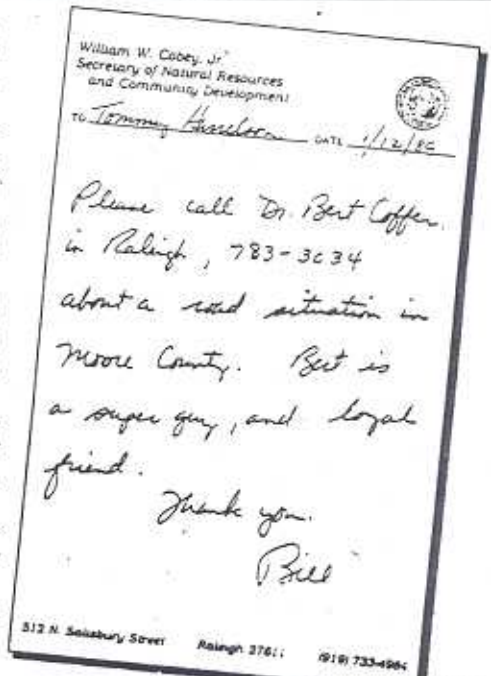 William W. Cobey, Jr.
Secretary of Natural Resources
and Community Development
TO Tommy DATE 1/12/86
Please call Dr. Bert Coffer
in Raleigh, 783-3034
about a road situation in
Moore County. Bert is
a super guy, and loyal
friend.
Thank you.
Bill
512 N. Salisbury Street Raleigh 27611 (919) 733-4984